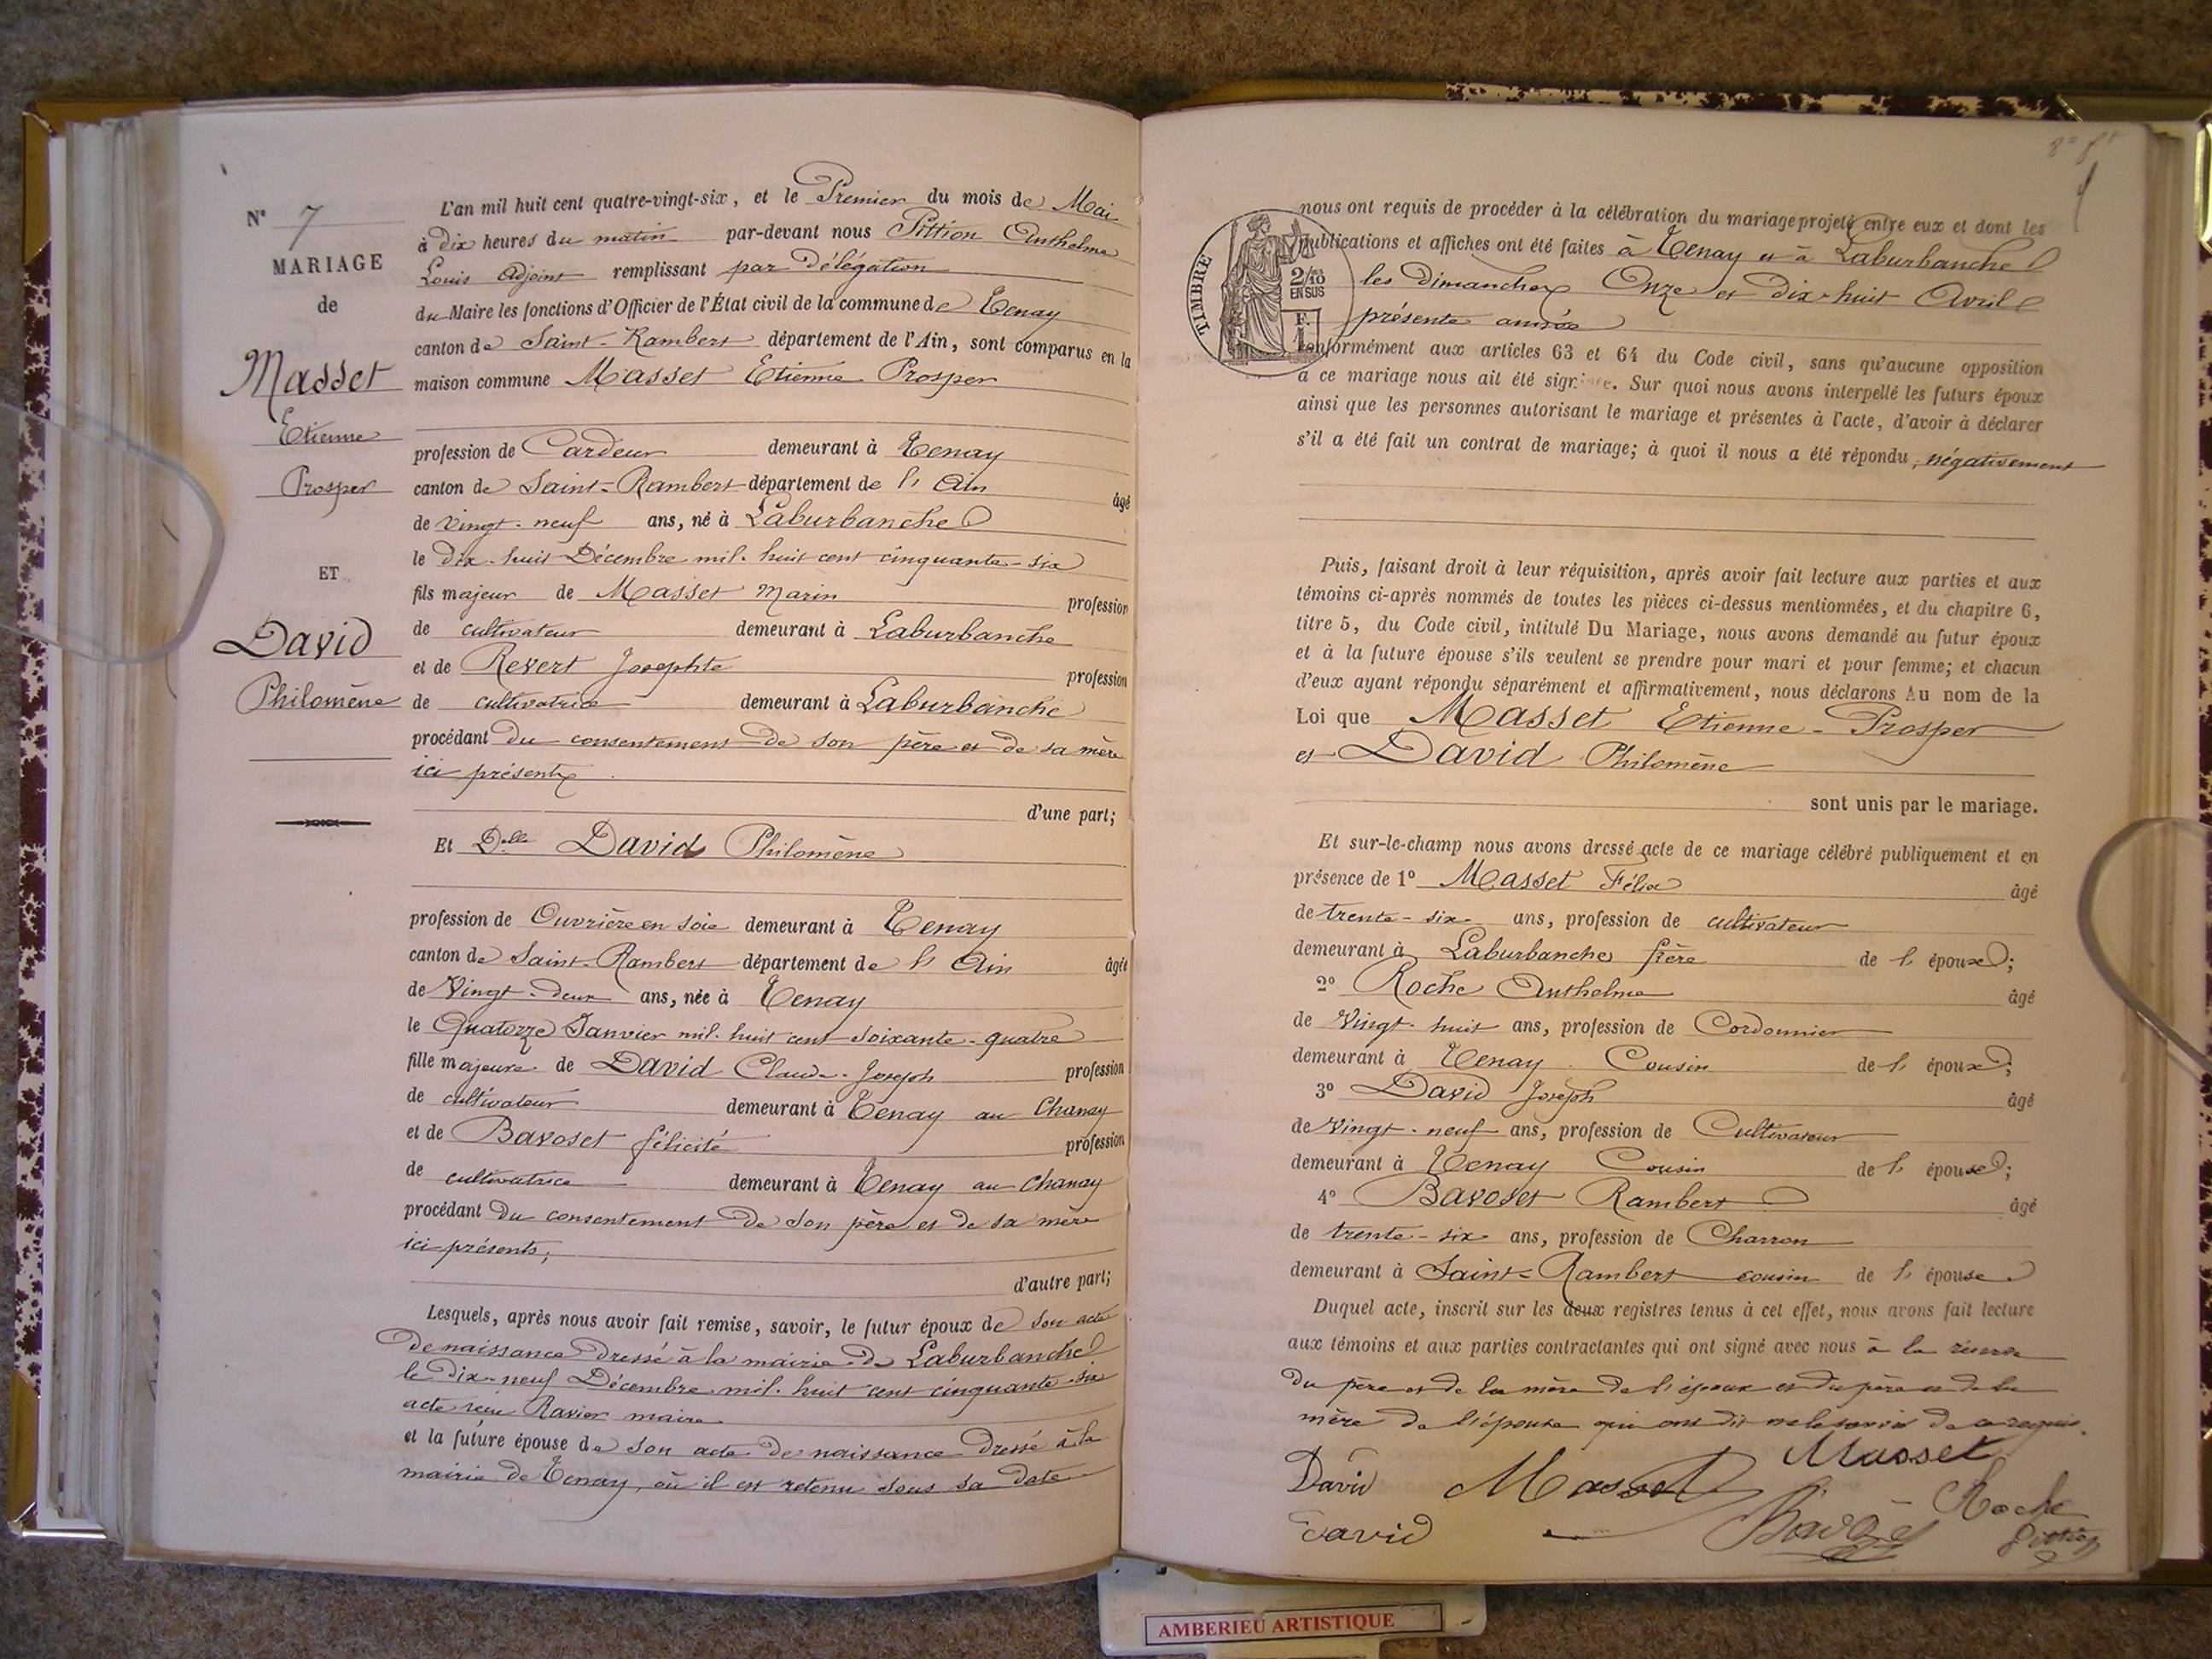 N° 7
MARIAGE
de
Masset
Etienne
Prosper
ET
David
Philomène
L'an mil huit cent quatre-vingt-six, et le Premier du mois de Mai
à dix heures du matin par-devant nous Pittion Anthelme
Louis Adjoint remplissant par Délégation
du Maire les fonctions d'Officier de l'État civil de la commune de Tenay
canton de Saint-Rambert département de l'Ain, sont comparus en la
maison commune Masset Etienne Prosper
profession de Cardeur demeurant à Tenay
canton de Saint-Rambert département de l'Ain âgé
de vingt-neuf ans, né à Laburbanche
le dix-huit Décembre mil-huit cent cinquante-six
fils majeur de Masset Marin profession
de cultivateur demeurant à Laburbanche
et de Revert Josephte profession
de cultivatrice demeurant à Laburbanche
procédant du consentement de son père et de sa mère
ici présents
d'une part;
Et Delle David Philomène
profession de Ouvrière en soie demeurant à Tenay
canton de Saint-Rambert département de l'Ain âgée
de Vingt-deux ans, née à Tenay
le Quatorze Janvier mil-huit cent soixante-quatre
fille majeure de David Claude-Joseph profession
de cultivateur demeurant à Tenay au Chanay
et de Bavoset félicité profession
de cultivatrice demeurant à Tenay au Chanay
procédant du consentement de son père et de sa mère
ici présents;
d'autre part;
Lesquels, après nous avoir fait remise, savoir, le futur époux de son acte
de naissance dressé à la mairie de Laburbanche
le dix-neuf Décembre mil-huit cent cinquante-six
acte reçu Ravier maire
et la future épouse de son acte de naissance dressé à la
mairie de Tenay, où il est retenu sous sa date
TIMBRE
2/10 EN SUS
F. 1
nous ont requis de procéder à la célébration du mariage projeté entre eux et dont les
publications et affiches ont été faites à Tenay et à Laburbanche
les dimanches Onze et dix-huit Avril
présente année
conformément aux articles 63 et 64 du Code civil, sans qu'aucune opposition
à ce mariage nous ait été signifiée. Sur quoi nous avons interpellé les futurs époux
ainsi que les personnes autorisant le mariage et présentes à l'acte, d'avoir à déclarer
s'il a été fait un contrat de mariage; à quoi il nous a été répondu, négativement
Puis, faisant droit à leur réquisition, après avoir fait lecture aux parties et aux
témoins ci-après nommés de toutes les pièces ci-dessus mentionnées, et du chapitre 6,
titre 5, du Code civil, intitulé Du Mariage, nous avons demandé au futur époux
et à la future épouse s'ils veulent se prendre pour mari et pour femme; et chacun
d'eux ayant répondu séparément et affirmativement, nous déclarons Au nom de la
Loi que Masset Etienne-Prosper
et David Philomène
sont unis par le mariage.
Et sur-le-champ nous avons dressé acte de ce mariage célébré publiquement et en
présence de 1° Masset Félix âgé
de trente-six ans, profession de cultivateur
demeurant à Laburbanche frère de l'époux;
2° Roche Anthelme âgé
de Vingt-huit ans, profession de Cordonnier
demeurant à Tenay Cousin de l'époux;
3° David Joseph âgé
de Vingt-neuf ans, profession de Cultivateur
demeurant à Tenay Cousin de l'épouse;
4° Bavoset Rambert âgé
de trente-six ans, profession de Charron
demeurant à Saint-Rambert cousin de l'épouse
Duquel acte, inscrit sur les deux registres tenus à cet effet, nous avons fait lecture
aux témoins et aux parties contractantes qui ont signé avec nous à la réserve
du père et de la mère de l'époux et du père et de la
mère de l'épouse qui ont dit ne le savoir de ce requis.
Masset
David Masset Roche
David Bavozet Pittion
AMBERIEU ARTISTIQUE